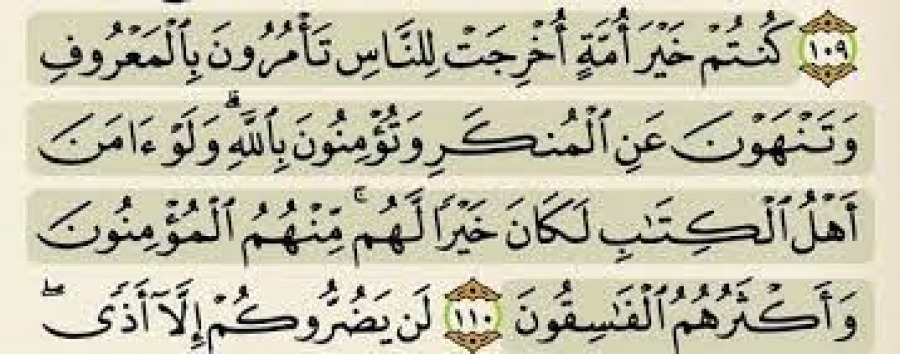 ۝١٠٩ كُنتُمْ خَيْرَ أُمَّةٍ أُخْرِجَتْ لِلنَّاسِ تَأْمُرُونَ بِٱلْمَعْرُوفِ
وَتَنْهَوْنَ عَنِ ٱلْمُنكَرِ وَتُؤْمِنُونَ بِٱللَّهِ ۗ وَلَوْ ءَامَنَ
أَهْلُ ٱلْكِتَـٰبِ لَكَانَ خَيْرًا لَّهُم ۚ مِّنْهُمُ ٱلْمُؤْمِنُونَ
وَأَكْثَرُهُمُ ٱلْفَـٰسِقُونَ ۝١١٠ لَن يَضُرُّوكُمْ إِلَّآ أَذًى ۖ